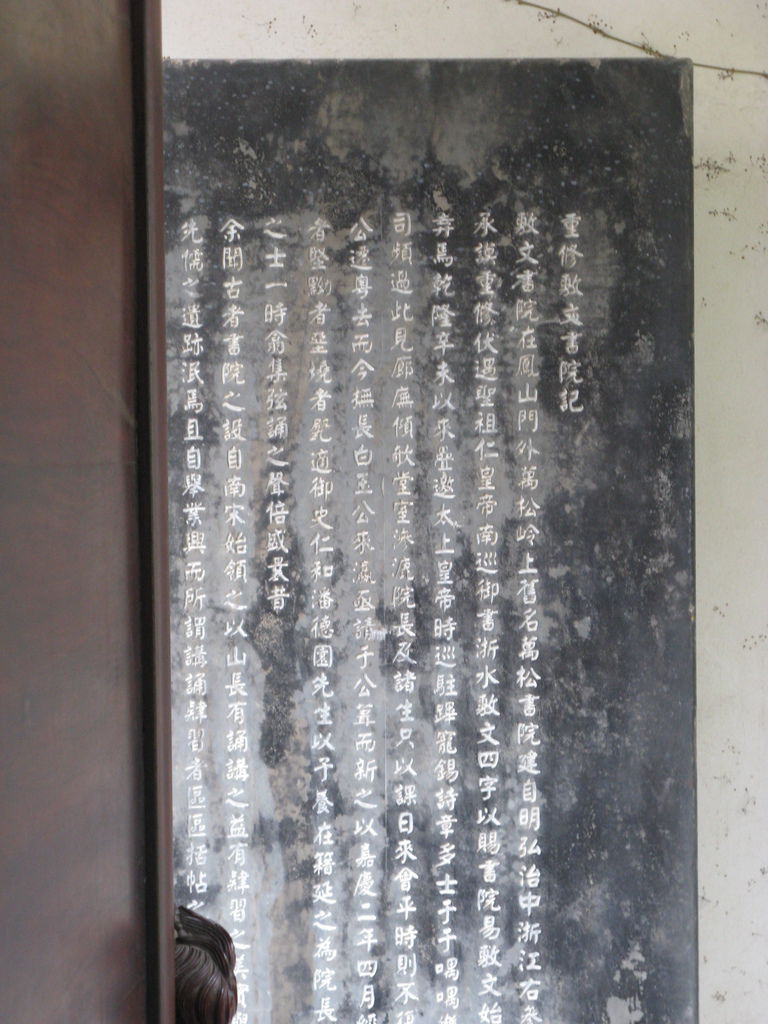 重修敷文書院記
敷文書院在鳳山門外萬松岭上舊名萬松書院建自明弘治中浙江右參
承謨重修伏遇聖祖仁皇帝南巡御書浙水敷文四字以賜書院易敷文始
弆焉乾隆辛未以來疊邀太上皇帝時巡駐蹕寵錫詩章多士于于喁喁
司頻過此見廊廡傾欹堂室洟漉院長及諸生只以課日來會平時則不復
公逮粵去而今撫長白玉公來瀛亟請于公葺而新之以嘉慶二年四月經
者堅黝者堊墝者甃適御史仁和潘德園先生以予養在籍延之為院長
之士一時翕集弦誦之聲倍盛曩昔
余聞古者書院之設自南宋始領之以山長有誦講之益有肄習之美實與
先儒之遺跡泯焉且自舉業興而所謂講誦肄習者區區括帖之